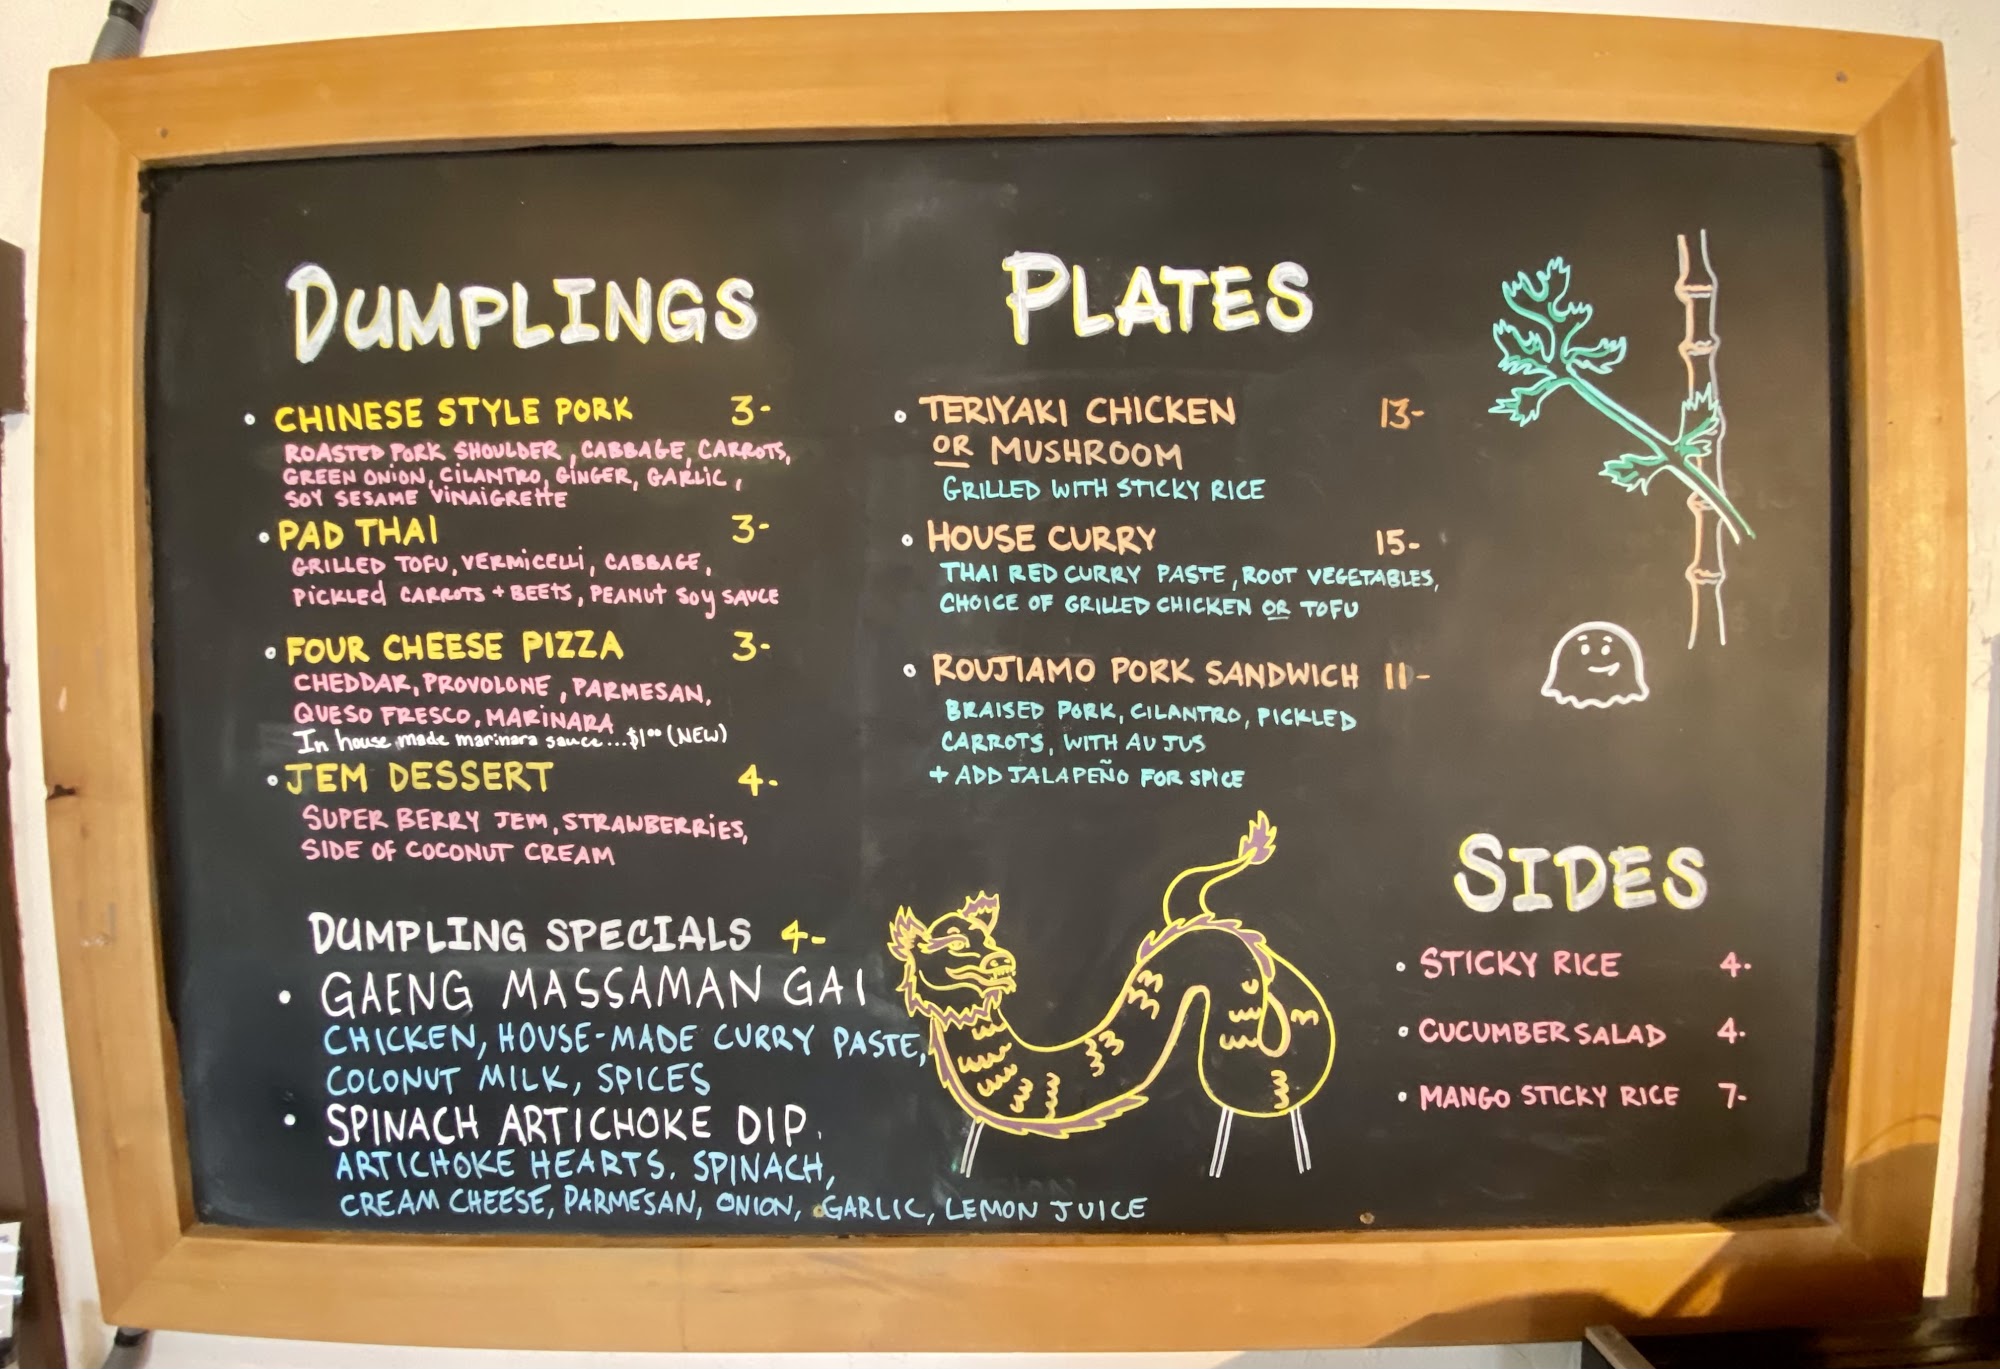 DUMPLINGS
• CHINESE STYLE PORK 3-
ROASTED PORK SHOULDER, CABBAGE, CARROTS,
GREEN ONION, CILANTRO, GINGER, GARLIC,
SOY SESAME VINAIGRETTE
• PAD THAI 3-
GRILLED TOFU, VERMICELLI, CABBAGE,
PICKLED CARROTS + BEETS, PEANUT SOY SAUCE
• FOUR CHEESE PIZZA 3-
CHEDDAR, PROVOLONE, PARMESAN,
QUESO FRESCO, MARINARA
In house made marinara sauce...$1⁰⁰ (NEW)
• JEM DESSERT 4-
SUPER BERRY JEM, STRAWBERRIES,
SIDE OF COCONUT CREAM
DUMPLING SPECIALS 4-
• GAENG MASSAMAN GAI
CHICKEN, HOUSE-MADE CURRY PASTE,
COCONUT MILK, SPICES
• SPINACH ARTICHOKE DIP.
ARTICHOKE HEARTS, SPINACH,
CREAM CHEESE, PARMESAN, ONION, GARLIC, LEMON JUICE
PLATES
• TERIYAKI CHICKEN 13-
OR MUSHROOM
GRILLED WITH STICKY RICE
• HOUSE CURRY 15-
THAI RED CURRY PASTE, ROOT VEGETABLES,
CHOICE OF GRILLED CHICKEN OR TOFU
• ROUJIAMO PORK SANDWICH 11-
BRAISED PORK, CILANTRO, PICKLED
CARROTS, WITH AU JUS
+ ADD JALAPEÑO FOR SPICE
SIDES
• STICKY RICE 4-
• CUCUMBER SALAD 4-
• MANGO STICKY RICE 7-